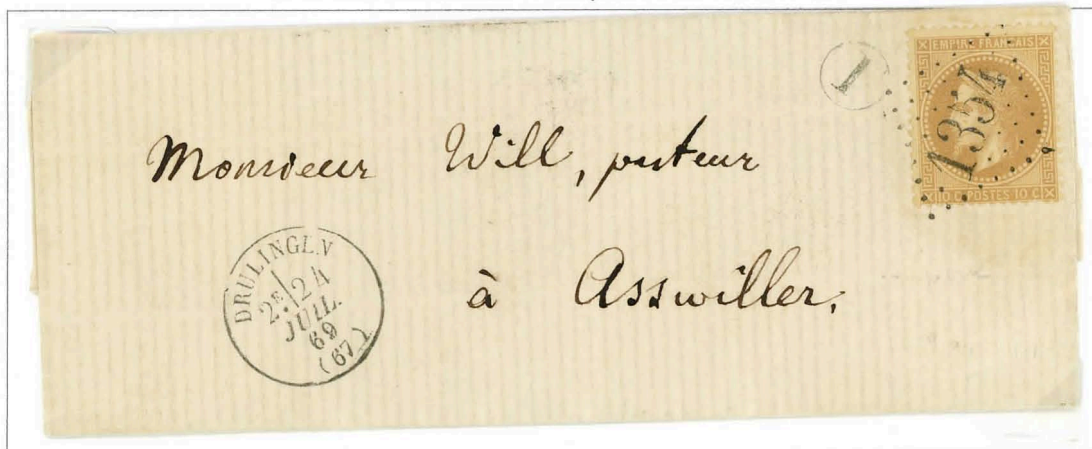 EMPIRE FRANÇAIS
1
1354
10 C POSTES 10 C
Monsieur Will, pasteur
à Asswiller.
DRULINGEN
2E 24
JUIL.
69
(67)